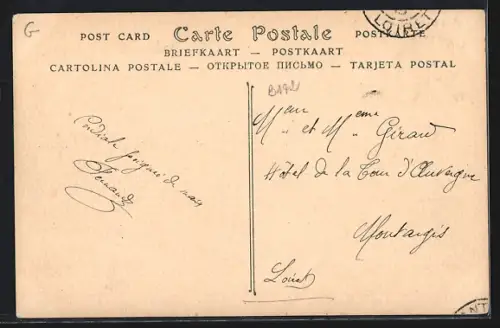 G
LOIRET
POST CARD Carte Postale POSTKARTE
BRIEFKAART — POSTKAART
CARTOLINA POSTALE — ОТКРЫТОЕ ПИСЬМО — TARJETA POSTAL
Cordiale poignée de main
Fernand
" et Mme Girard
Hôtel de la Tour d'Auvergne
Montargis
Loiret